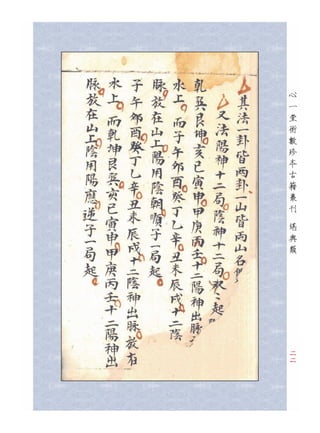 其法一卦皆兩卦一山皆兩山名
又法陽神十二局陰神十二局
起
乾巽艮坤亥巳寅申甲庚丙壬十二陽神出脉
水上而子午卯酉癸丁乙辛丑未辰戌十二陰
脉放在山上陽用陰朝順子一局起
子午卯酉癸丁乙辛丑未辰戌十二陰神出脉放在
水上而乾坤艮巽亥巳寅申甲庚丙壬十二陽神出
脉放在山上陰用陽應逆子一局起
心一堂術數珍本古籍叢刊 堪輿類
二二